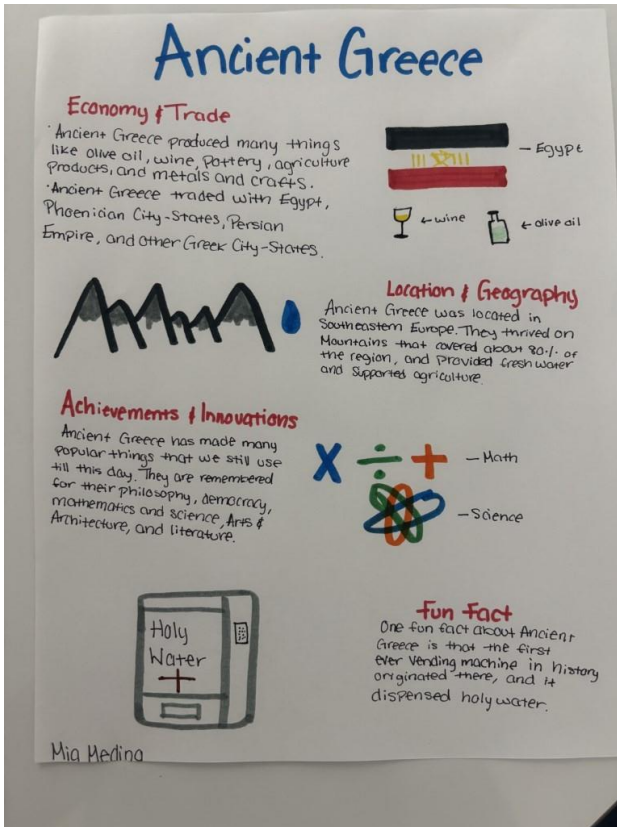 Ancient Greece
Economy & Trade
·Ancient Greece produced many things
like olive oil, wine, pottery, agriculture
products, and metals and crafts.
·Ancient Greece traded with Egypt,
Phoenician City-States, Persian
Empire, and other Greek City-States.
– Egypt
← wine
← olive oil
Location & Geography
Ancient Greece was located in
Southeastern Europe. They thrived on
Mountains that covered about 80% of
the region, and provided fresh water
and supported agriculture.
Achievements & Innovations
Ancient Greece has made many
popular things that we still use
till this day. They are remembered
for their philosophy, democracy,
mathematics and science, Arts &
Architecture, and literature.
x ÷ + – Math
– Science
Holy
Water
Fun Fact
One fun fact about Ancient
Greece is that the first
ever vending machine in history
originated there, and it
dispensed holy water.
Mia Medina